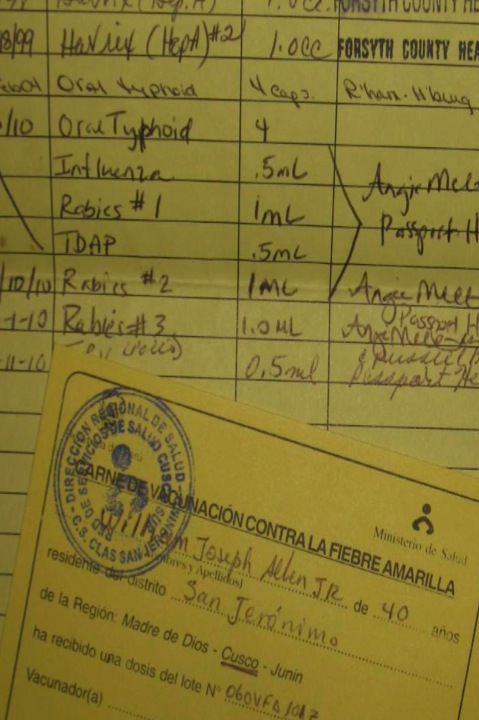 1.0cc FORSYTH COUNTY HE
8/99 Havrix (HepA) #2 1.0cc FORSYTH COUNTY HEA
Oral typhoid 4 caps.
/10 Oral Typhoid 4
Influenza .5mL
Rabies #1 1mL
TDAP .5mL
Angie Melt
Passport H
/10/10 Rabies #2 1mL Angie Melt
-1-10 Rabies #3 1.0ML Passport H
-11-10 0.5ml Passport He
DIRECCIÓN REGIONAL DE SALUD
RED DE SERVICIOS DE SALUD CUSCO
C.S. CLAS SAN JERÓNIMO
Ministerio de Salud
CARNE DE VACUNACIÓN CONTRA LA FIEBRE AMARILLA
William Joseph Allen JR de 40 años
(Nombres y Apellidos)
residente del distrito San Jerónimo
de la Región: Madre de Dios - Cusco - Junin
ha recibido una dosis del lote N°
Vacunador(a)